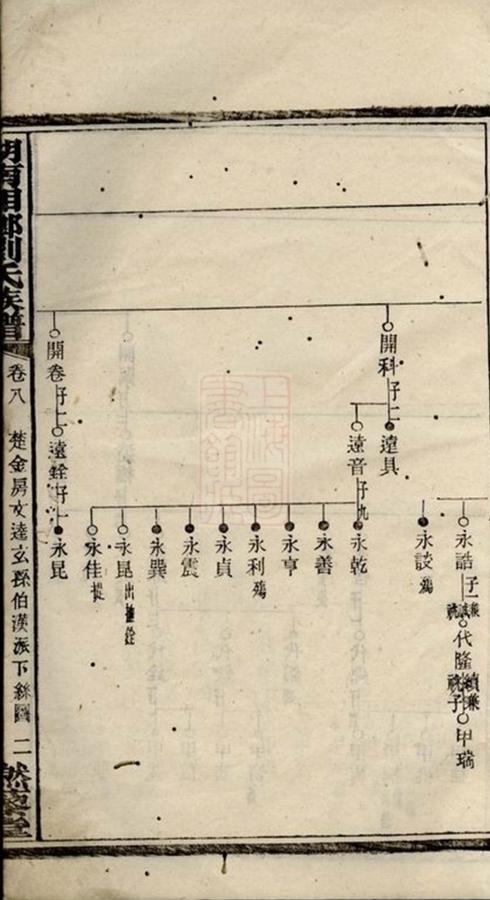 永誥
子一
代隆
甲瑞
永談 殤
開科
子二
遠具
遠音
子九
永乾
永善
永亨
永利 殤
永貞
永震
永巽
永昆
永佳
開卷
子二
遠銓
永昆
劉氏族譜
卷八
楚金房文達玄孫伯漢派下絲圖
二